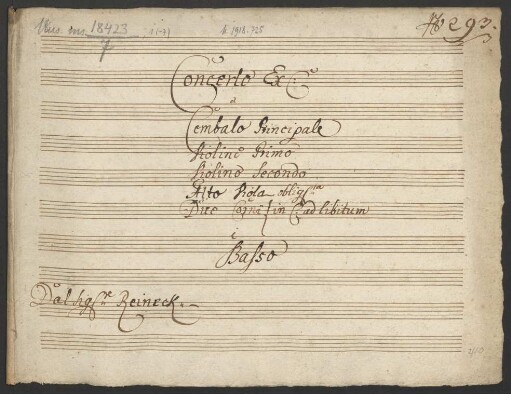 Mus. ms. 18423 / 7
(1-7)
K 1918.725
No 293.
Concerto Ex C.
a
Cembalo Principale
Violino Primo
Violino Secondo
Alto Viola oblig.ta
Due Corni in C. ad libitum
è
Basso
Dal Sig.re Reineck.